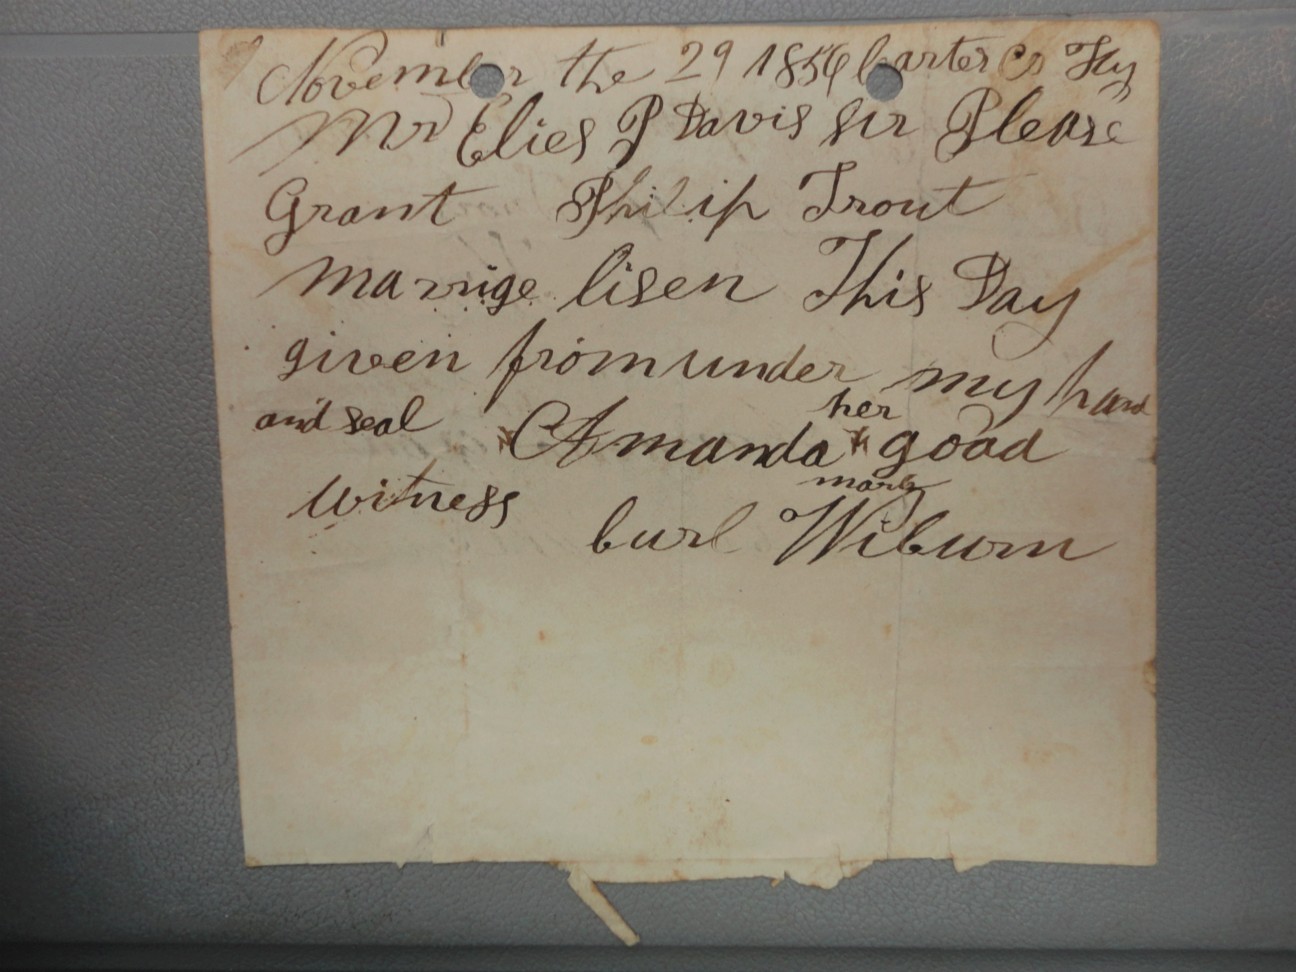 November the 29 1856 Carter Co Ky
Mr Elies P Davis sir Please
Grant Philip Trout
marrige lisen This Day
given from under my hand
and seal Amanda her x mark goad
witness
burl Wiburn